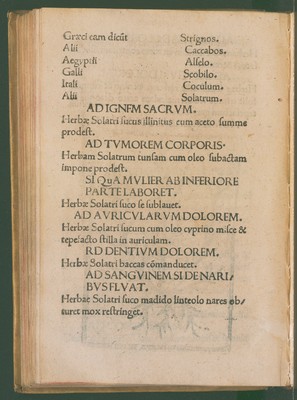 Græci eam dicūt Strignos.
Alii Caccabos.
Aegyptii Alselo.
Galli Scobilo.
Itali Coculum.
Alii Solatrum.
AD IGNEM SACRVM.
Herbæ Solatri sucus illinitus cum aceto summe
prodest.
AD TVMOREM CORPORIS.
Herbam Solatrum tunsam cum oleo subactam
impone prodest.
SI QuA MVLIER AB INFERIORE
PARTE LABORET.
Herbæ Solatri suco se subleuet.
AD AVRICVLARVM DOLOREM.
Herbæ Solatri sucum cum oleo cyprino misce &
tepefacto stilla in auriculam.
RD DENTIVM DOLOREM.
Herbæ Solatri baccas cōmanducet.
AD SANGVINEM SI DE NARI/
BVS FLVAT.
Herbae Solatri suco madido linteolo nares ob/
turet mox restringet.